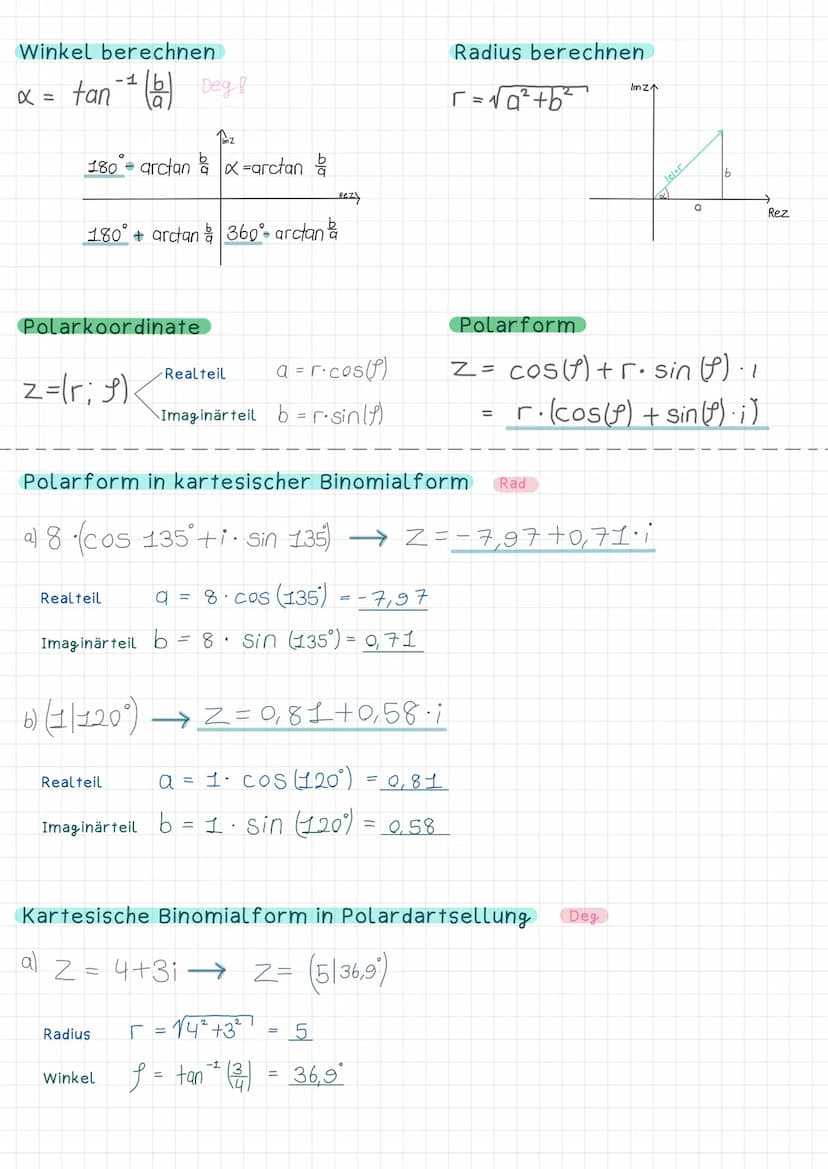 Winkel berechnen
α = tan⁻¹ (b/a) Deg!
Imz
180° - arctan b/a
α = arctan b/a
Rez
180° + arctan b/a
360° - arctan b/a
Radius berechnen
r = √a² + b²
Imz
|z|=r
b
α
a
Rez
Polarkoordinate
z = (r; φ)
Realteil a = r·cos(φ)
Imaginärteil b = r·sin(φ)
Polarform
z = cos(φ) + r· sin(φ) · i
= r·(cos(φ) + sin(φ)·i)
Polarform in kartesischer Binomialform Rad
a) 8 ·(cos 135° + i · sin 135°) → z = -7,97 + 0,71·i
Realteil a = 8 · cos (135°) = -7,97
Imaginärteil b = 8 · sin (135°) = 0,71
b) (1|120°) → z = 0,81 + 0,58 · i
Realteil a = 1· cos (120°) = 0,81
Imaginärteil b = 1 · sin (120°) = 0,58
Kartesische Binomialform in Polardartsellung Deg
a) z = 4+3i → z = (5|36,9°)
Radius r = √4² + 3² = 5
Winkel φ = tan⁻¹ (3/4) = 36,9°